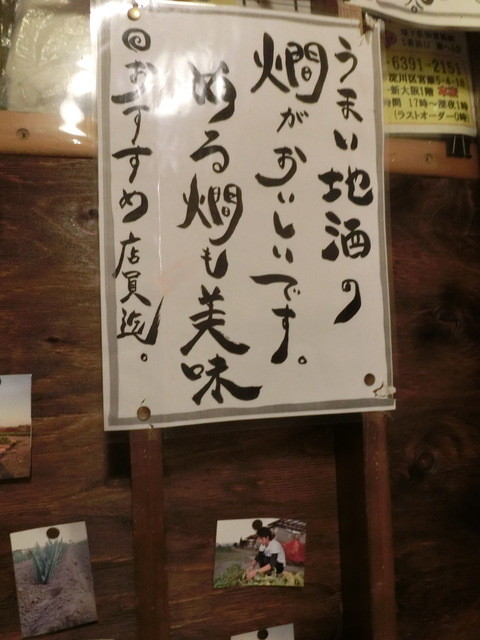 うまい地酒の
燗がおいしいです。
ぬる燗も美味
◎おすすめ店員迄。
6391-2151
淀川区宮原5-4-18
新大阪1階
17時〜深夜1時
(ラストオーダー0時